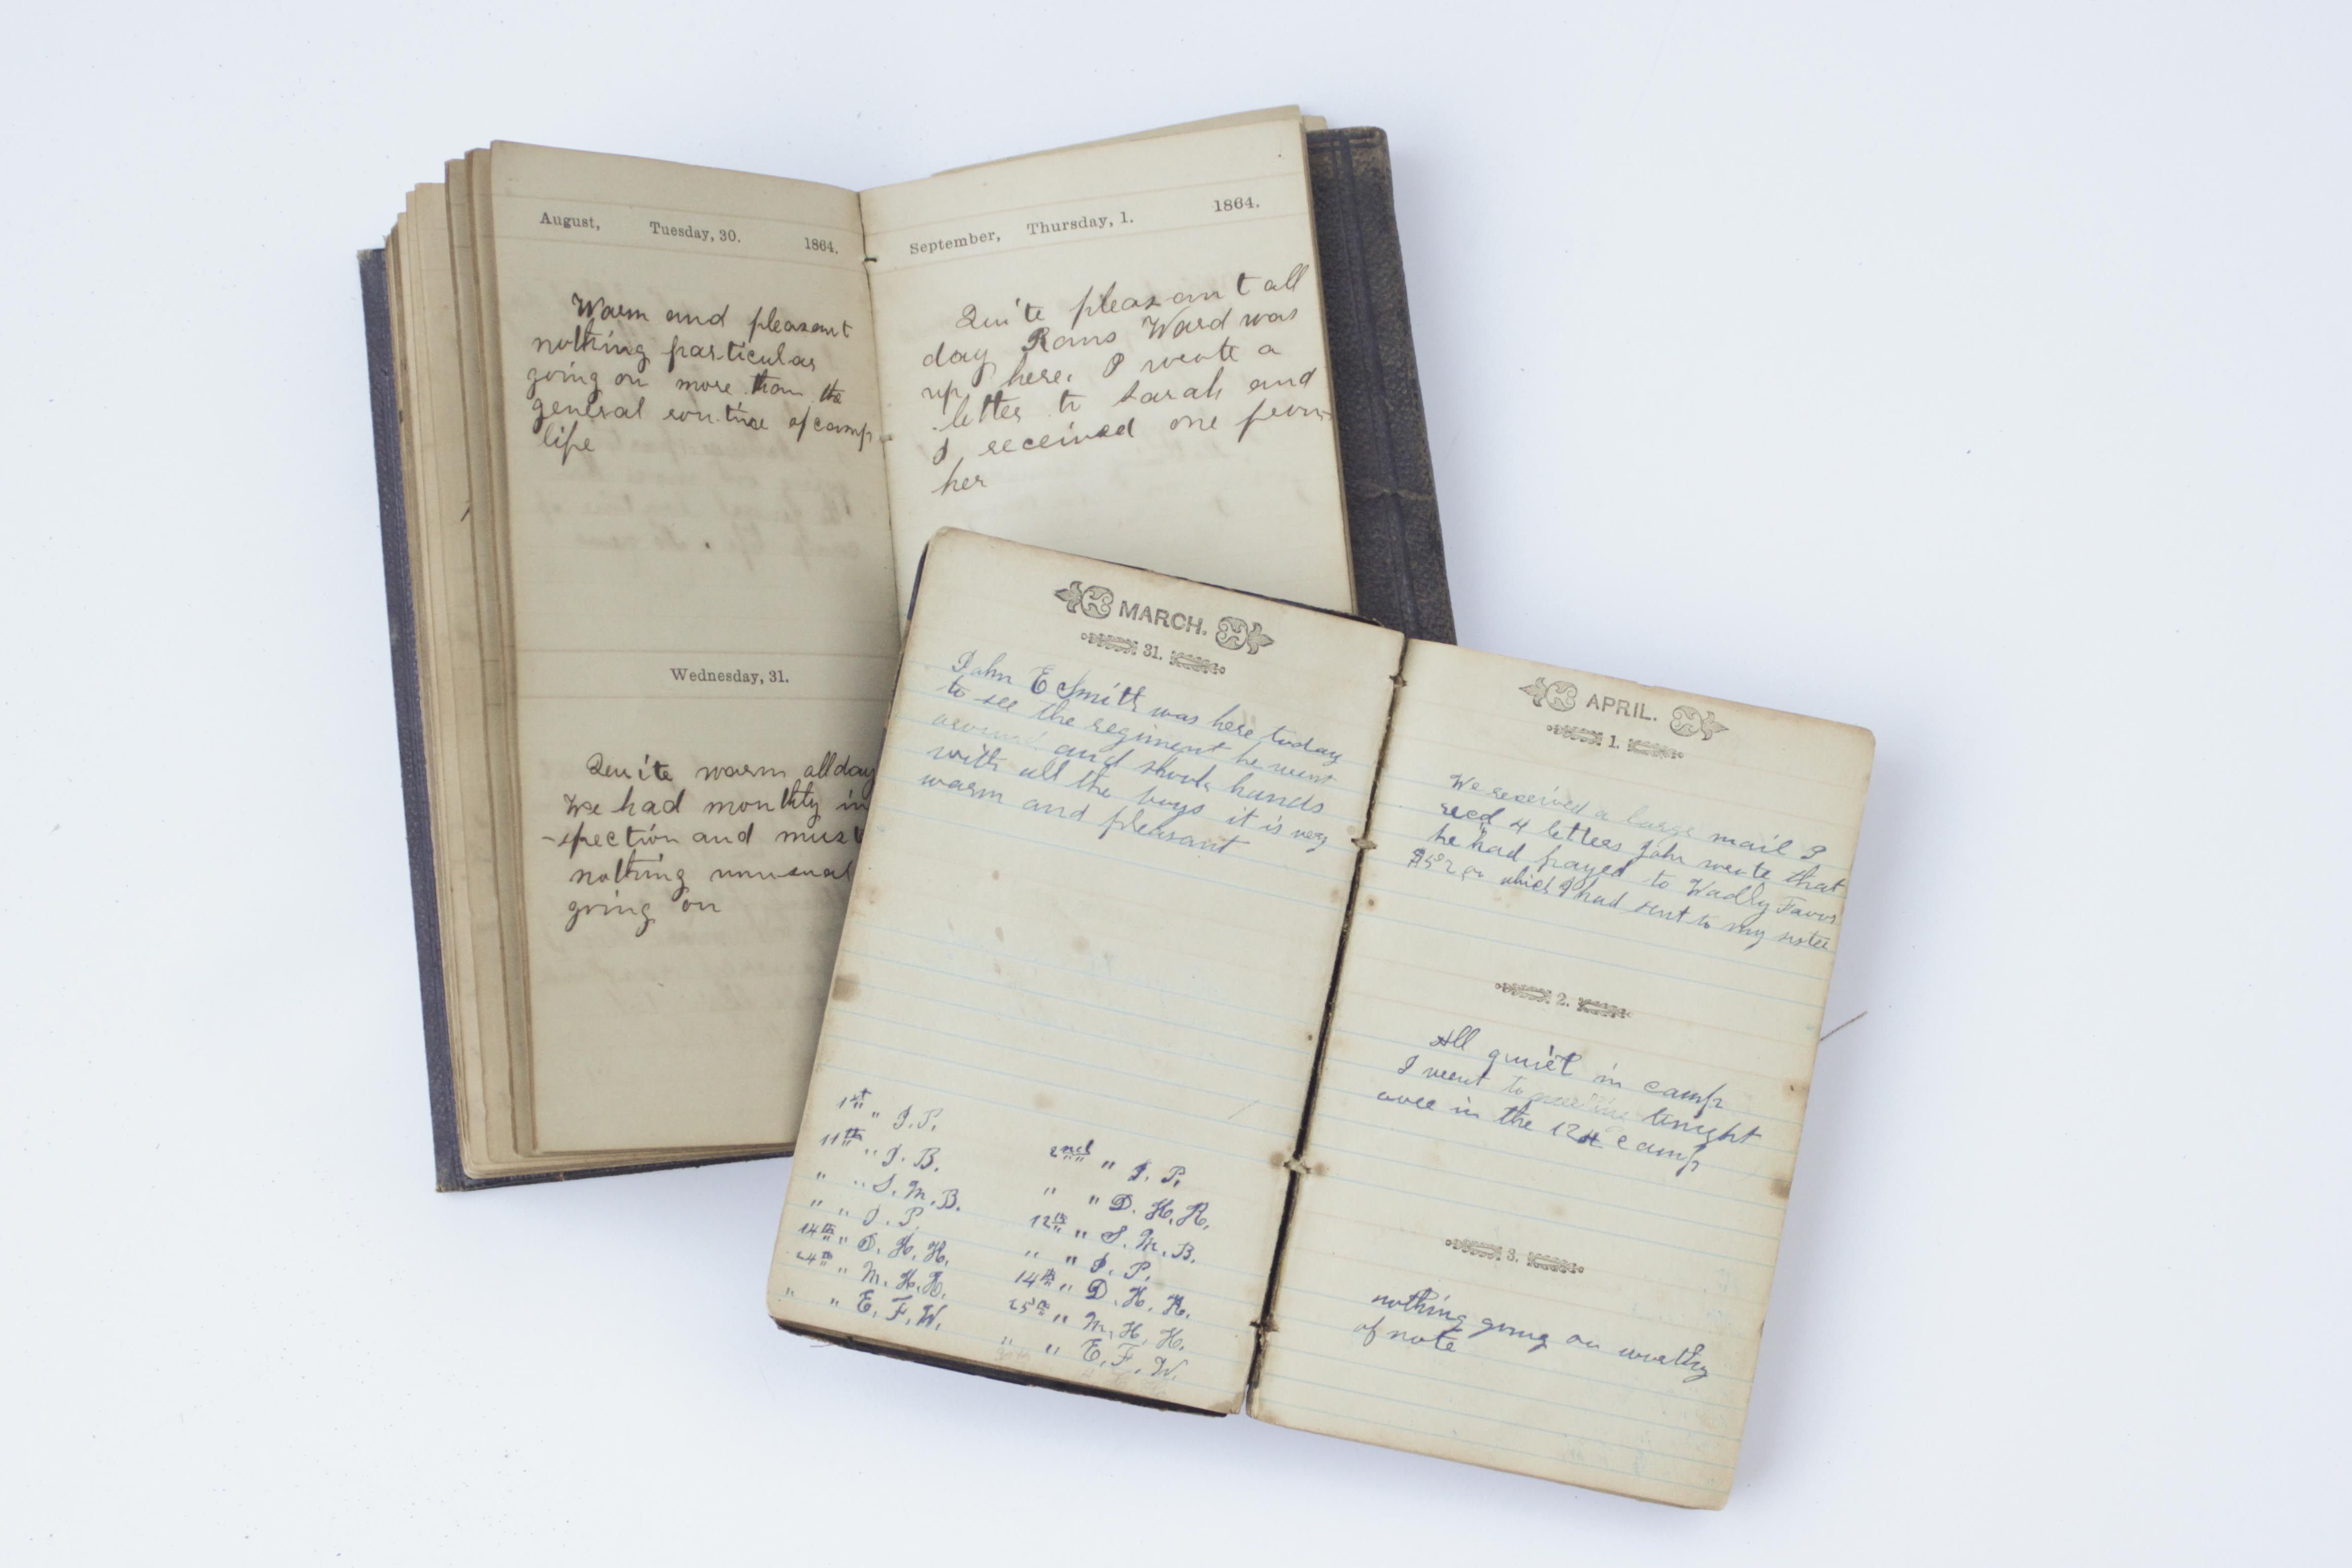 August, Tuesday, 30. 1864.
Warm and pleasant
nothing particular
going on more than the
general routine of camp
life
Wednesday, 31.
Quite warm all day
We had monthly in
-spection and must
nothing unusual
going on
September, Thursday, 1. 1864.
Quite pleasant all
day Rans Ward was
up here. I wrote a
letter to Sarah and
I received one from
her
MARCH.
31.
John E Smith was here today
to see the regiment he went
around and shook hands
with all the boys it is very
warm and pleasant
1st " J. P.
11th " J. B.
" " S. M. B.
" " J. P.
14th " D. H. H.
24th " M. H. H.
" " E. F. W.
2nd " J. P.
" " D. H. R.
12th " S. M. B.
" " J. P.
14th " D. H. R.
25th " M. H. H.
" " E. F. W.
APRIL.
1.
We received a large mail I
recd 4 letters John wrote that
he had payed to Wadly
which I had sent to my
2.
All quiet in camp
I went to tonight
over in the 124 camp
3.
nothing going on worthy
of note